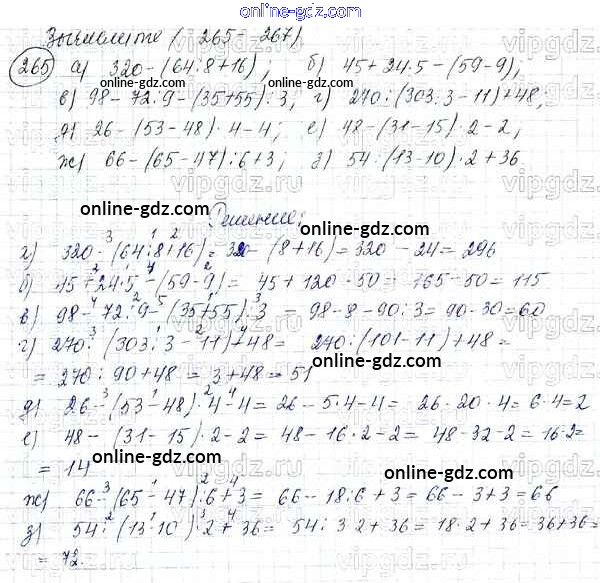 online-gdz.com
Вычислите (265–267)
265 а) 320 – (64 : 8 + 16); б) 45 + 24 · 5 – (59 – 9);
online-gdz.com online-gdz.com
в) 98 – 72 : 9 – (35 + 55) : 3; г) 270 : (303 : 3 – 11) + 48;
д) 26 – (53 – 48) · 4 – 4; е) 48 – (31 – 15) · 2 – 2;
ж) 66 – (65 – 47) : 6 + 3; з) 54 : (13 – 10) · 2 + 36.
vipgdz.ru vipgdz.ru
online-gdz.com Решение: online-gdz.com
а) 320 – (64 : 8 + 16) = 320 – (8 + 16) = 320 – 24 = 296
б) 45 + 24 · 5 – (59 – 9) = 45 + 120 – 50 = 165 – 50 = 115
в) 98 – 72 : 9 – (35 + 55) : 3 = 98 – 8 – 90 : 3 = 90 – 30 = 60
г) 270 : (303 : 3 – 11) + 48 = 270 : (101 – 11) + 48 =
online-gdz.com
= 270 : 90 + 48 = 3 + 48 = 51
д) 26 – (53 – 48) · 4 – 4 = 26 – 5 · 4 – 4 = 26 – 20 – 4 = 6 – 4 = 2
е) 48 – (31 – 15) · 2 – 2 = 48 – 16 · 2 – 2 = 48 – 32 – 2 = 16 – 2 =
= 14
online-gdz.com online-gdz.com
ж) 66 – (65 – 47) : 6 + 3 = 66 – 18 : 6 + 3 = 66 – 3 + 3 = 66
з) 54 : (13 – 10) · 2 + 36 = 54 : 3 · 2 + 36 = 18 · 2 + 36 = 36 + 36 =
= 72.
online-gdz.com